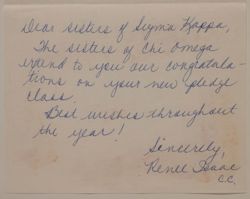 Dear Sisters of Sigma Kappa,
The sisters of Chi Omega
extend to you our congratula-
tions on your new pledge
class.
Best wishes throughout
the year!
Sincerely,
Renee Isaac
C.C.